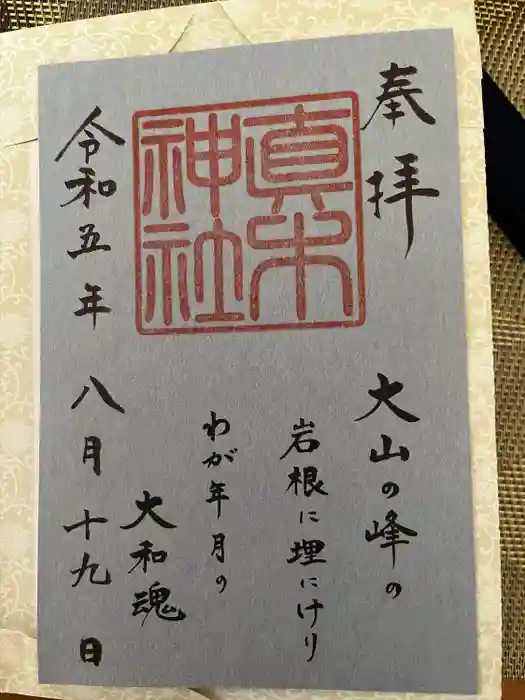 奉拝
真木神社
大山の峰の
岩根に埋にけり
わが年月の
大和魂
令和五年八月十九日